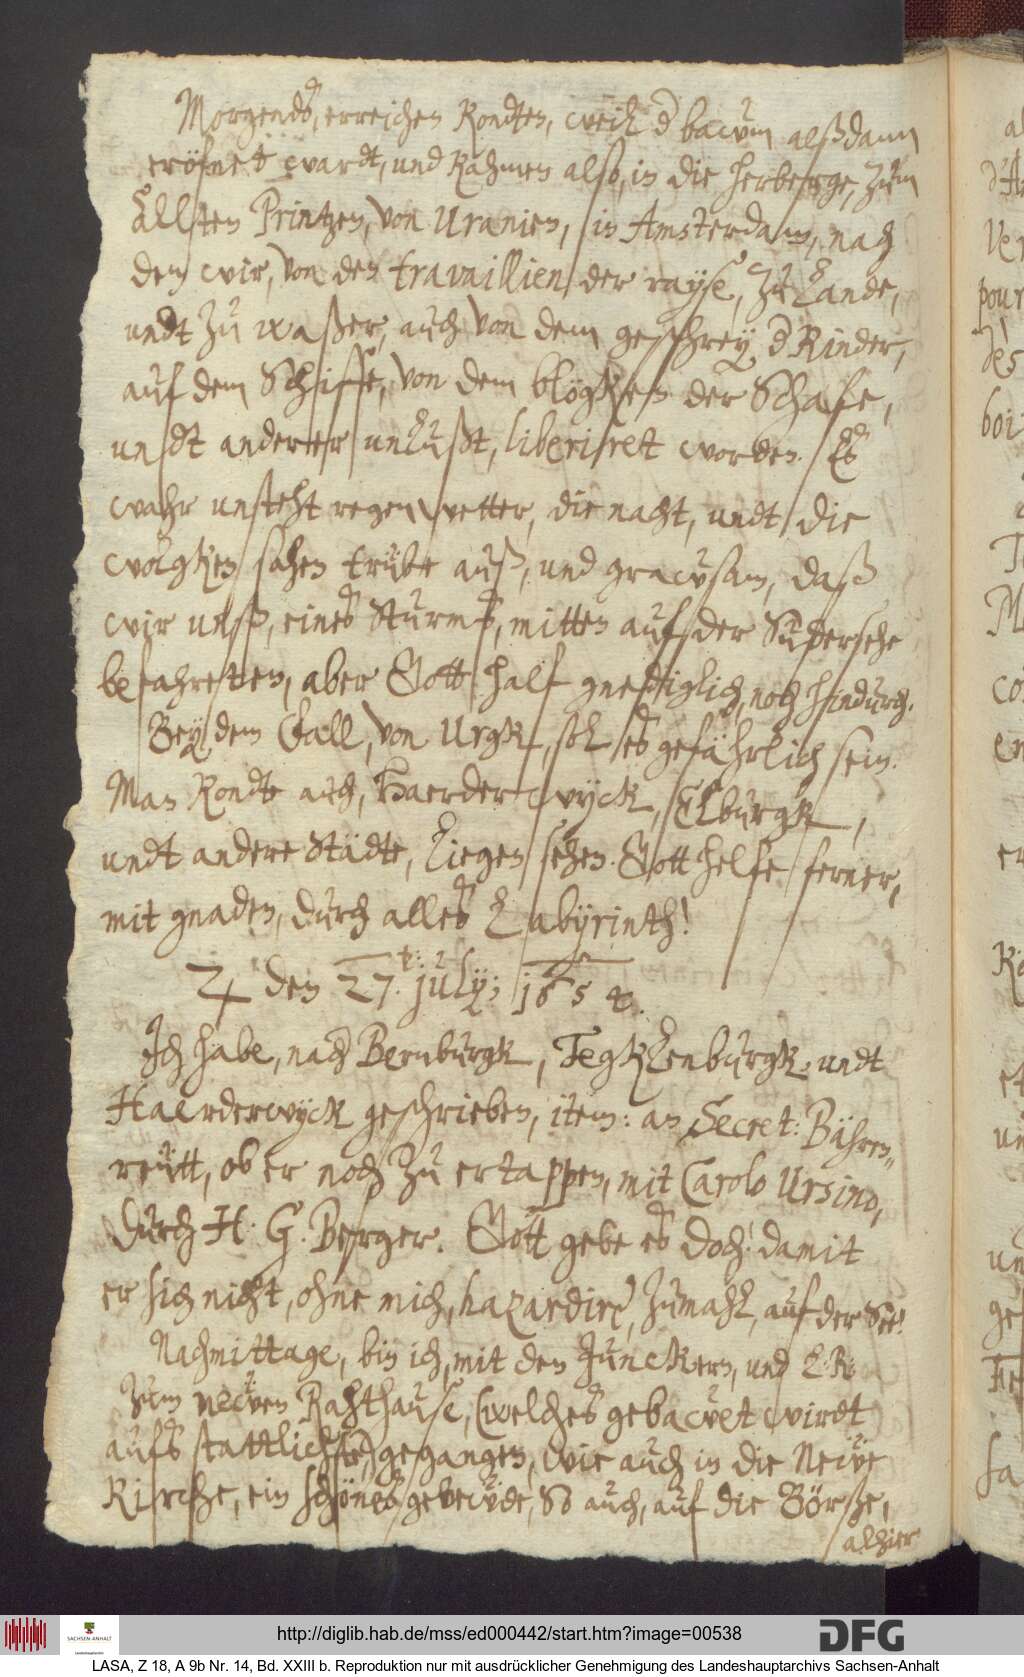 Morgends, erreichen kondten, weil d bawm alßdann
eröfnet wardt, und kahmen also, in die herberge, zum
ällsten Printzen, von Uranien, in Amsterdam, nach
dem wir, von den travaillien der rayse, zu Lande,
undt zu waßer, auch von dem geschrey d Kinder,
auf dem Schiffe, von dem blögken der Schafe,
undt anderer unlußt, liberiret worden. Es
wahr unsteht regenwetter, die nacht, undt die
wolgken sahen trübe auß, und grawsam, daß
wir unß, eines Sturms, mitten auf der Sudersehe
befahreten, aber Gott half gnediglich, noch hindurch.
Bey dem Vall, von Urgk, sol es gefährlich sein.
Man kondte auch, Haerderwyck, Elburgk,
undt andere Städte, liegen sehen. Gott helfe ferner,
mit gnaden, durch alles Labyrinth!
♃ den 27. July; 1654.
Ich habe, nach Bernburgk, Tegklenburgk, undt
Haerderwyck geschrieben, item: an Secret: Bähren,,
reütt, ob er noch zu ertappen, mit Carolo Ursino,
durch H: G. Berger. Gott gebe es doch! damit
er sich nicht, ohne mich, hazardire, zumahl, auf der See!
Nachmittage, bin ich, mit den Junckern, und L: R:
zum newen Rahthause, (welches gebawet wirdt
aufs stattlichste) gegangen, wie auch in die Neüe
Kirche, ein schönes gebewde, So auch, auf die Börße,
alhier
http://diglib.hab.de/mss/ed000442/start.htm?image=00538
SACHSEN-ANHALT
DFG
LASA, Z 18, A 9b Nr. 14, Bd. XXIII b. Reproduktion nur mit ausdrücklicher Genehmigung des Landeshauptarchivs Sachsen-Anhalt